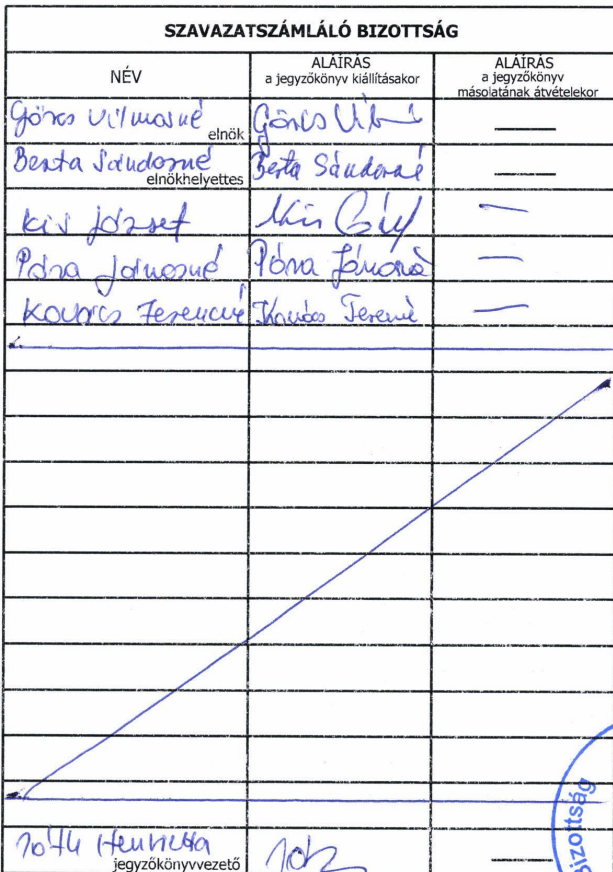 SZAVAZATSZÁMLÁLÓ BIZOTTSÁG
NÉV
ALÁÍRÁS
a jegyzőkönyv kiállításakor
ALÁÍRÁS
a jegyzőkönyv
másolatának átvételekor
Göncs Vilmosné
elnök
Göncs
—
Berta Sándorné
elnökhelyettes
Berta Sándorné
—
Kis József
Kis
—
Póra Jánosné
Póra Jánosné
—
Kovács Ferencné
Kovács Ferencné
—
Tóth Henrietta
jegyzőkönyvvezető
—
Bizottság